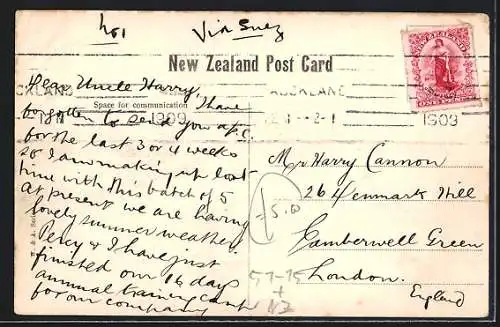 No 1
Via Suez
New Zealand Post Card
Space for communication
AUCKLAND
1909
1909
ONE PENNY
Dear Uncle Harry, I have
forgotten to send you a p.c.
for the last 3 or 4 weeks
so I am making up lost
time with this batch of 5
at present we are having
lovely summer weather.
Percy & I have just
finished our 16 days
annual training camp
for our company
Mr Harry Cannon
26 Denmark Hill
Camberwell Green
London.
England
5.00
57-75
+
NZ